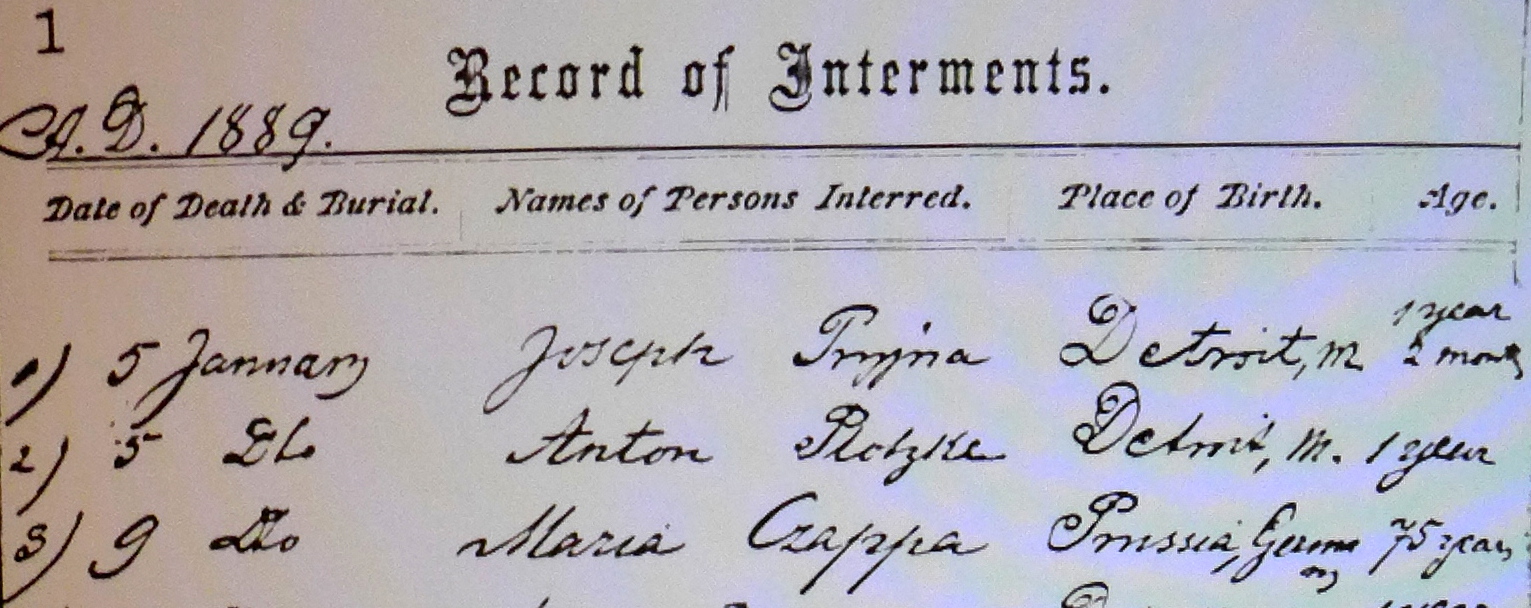 1
Record of Interments.
A.D. 1889.
Date of Death & Burial. Names of Persons Interred. Place of Birth. Age.
1) 5 January Joseph Detroit, M 1 year 2 month
2) 5 Do Anton Plotzke Detroit, M. 1 year
3) 9 Do Maria Czappa Prussia, Germany 75 years